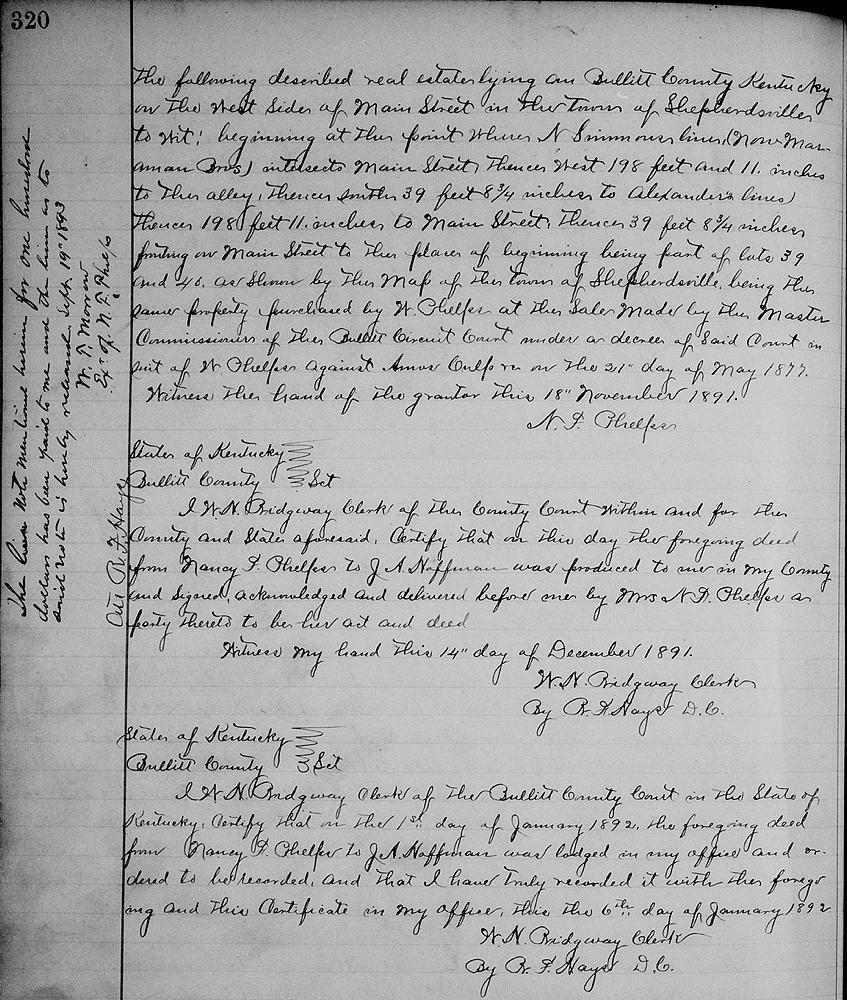 320
The following described real estate lying in Bullitt County Kentucky
on the West Side of Main Street in the town of Shepherdsville
to Wit: beginning at the point where N Simmons line (Now Mar-
aman Bros) intersects Main Street, Thence West 198 feet and 11. inches
to the alley, Thence south 39 feet 8 3/4 inches to Alexander's line
Thence 198 feet 11. inches to Main Street, Thence 39 feet 8 3/4 inches
fronting on Main Street to the place of beginning being part of lots 39
and 40. as shown by the Map of the town of Shepherdsville, being the
same property purchased by W. Phelps at the Sale Made by the Master
Commissioner of the Bullitt Circuit Court under a decree of Said Court in
suit of W Phelps against Amos on the 21" day of May 1877.
Witness the hand of the grantor this 18" November 1891.
N. F. Phelps
State of Kentucky
Bullitt County Sct
I W.N. Ridgway Clerk of the County Court Within and for the
County and State aforesaid, Certify that on this day the foregoing deed
from Nancy F. Phelps to J A. Hoffman was produced to me in my County
and Signed, acknowledged and delivered before me by Mrs N. F. Phelps a
party thereto to be her act and deed
Witness my hand this 14" day of December 1891.
W. N. Ridgway Clerk
By R. F. Hays D.C.
State of Kentucky
Bullitt County Sct
I W N. Ridgway Clerk of the Bullitt County Court in the State of
Kentucky, Certify that on the 1st day of January 1892, the foregoing deed
from Nancy F. Phelps to J. A. Hoffman was lodged in my office and or-
dered to be recorded, and that I have truly recorded it with the forego
ing and this Certificate in my office, this the 6th day of January 1892
W N. Ridgway Clerk
By R. F. Hays D.C.
The lien note mentioned herein for one hundred
dollars has been paid to me and the lien as to
said note is hereby released Sept 19" 1893
W. P. Morrow
Exr of N. F. Phelps
Att R. F. Hays